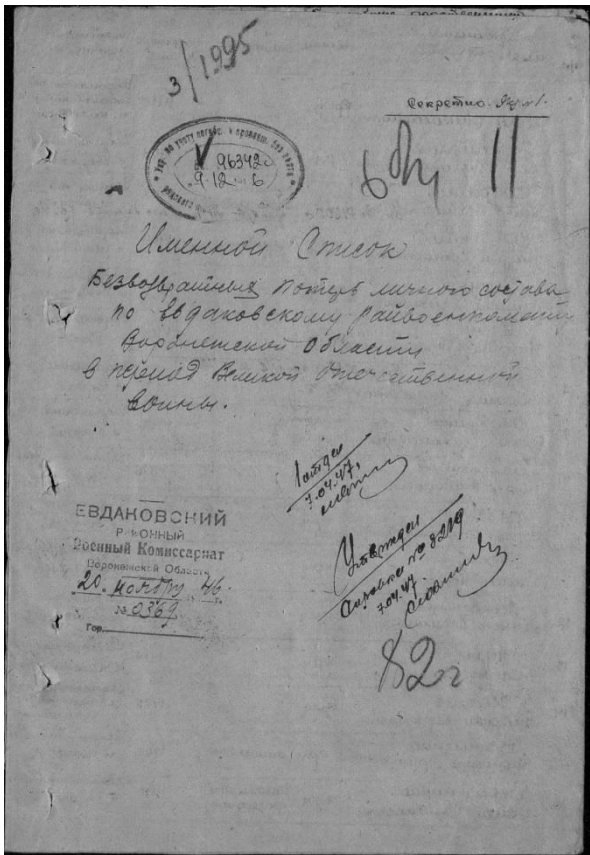 3/1995
Секретно. Экз. №1.
96342с
9.12 6
11
Именной Список
Безвозвратных потерь личного состава
по Евдаковскому райвоенкомату
Воронежской Области
в период Великой Отечественной
войны.
7.04.47.
ЕВДАКОВСКИЙ
РАЙОННЫЙ
Военный Комиссариат
Воронежской Области
20. ноября 46.
№ 0369
Гор.
№ 8219
7.04.47
82г